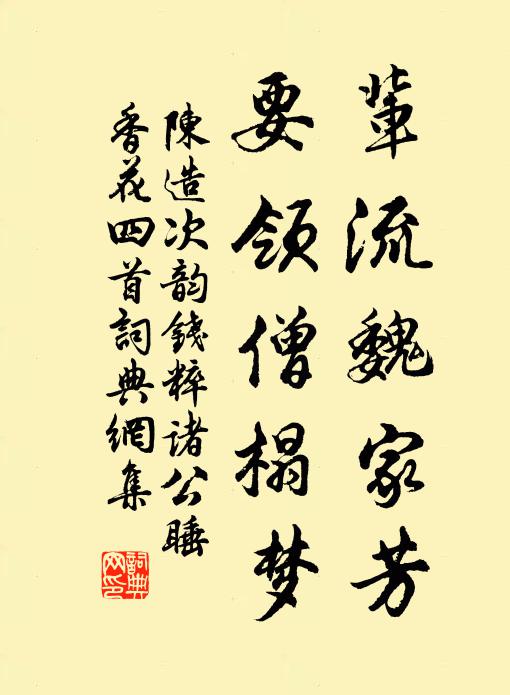 輩流魏家芳
要领僧榻梦
陳造次韵錢粹诸公睡
香花四首詞典網集